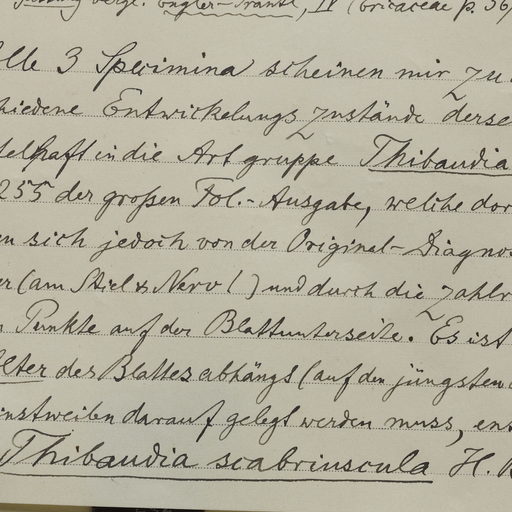 vergl. Engler-Prantl, IV (Ericaceae p. 56
alle 3 Specimina scheinen mir zu
hiedene Entwickelungszustände derse
telhaft in die Artgruppe Thibaudia
255 der großen Fol.-Ausgabe, welche dor
en sich jedoch von der Original-Diagno
er (am Stiel & Nerv!) und durch die zahlr
n Punkte auf der Blattunterseite. Es ist
Alter des Blattes abhängt (auf den jüngsten
instweilen darauf gelegt werden muss, ens
Thibaudia scabriuscula H. B